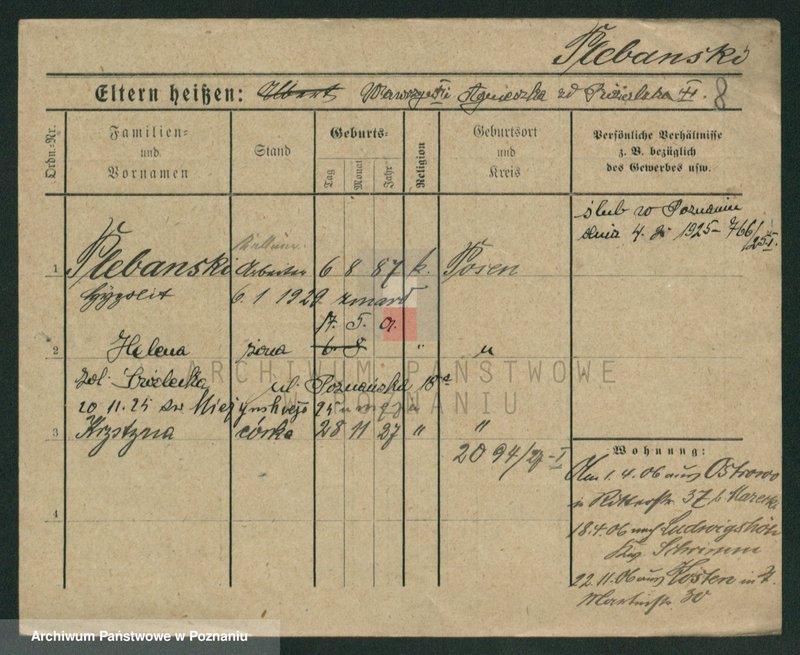 Plebanski
Eltern heißen: Albert Wawrzyn Agnieszka zd 8
Ordn.-Nr. Familien- und Vornamen Stand Geburts- Tag Monat Jahr Religion Geburtsort und Kreis Persönliche Verhältnisse z. B. bezüglich des Gewerbes usw.
ślub w Poznaniu
dnia 4. 1925 - 766/25 I.
1 Plebanski Arbeiter 6 8 87 k. Posen
Hypolit 6.1 1929 zmarł
17. 5. 01.
2 Helena żona 6 8 " "
ul. Poznańska
20 11. 25
3 Krystyna córka 28 11 27 " "
2094/27-I
4
Wohnung:
1.4.06 aus Ostrowo
Ritterstr. 37 b.
18.4.06 nach Ludwigshöh
Schrimm
22.11.06 aus Kosten
Martinstr. 30
ARCHIWUM PAŃSTWOWE
W POZNANIU
Archiwum Państwowe w Poznaniu